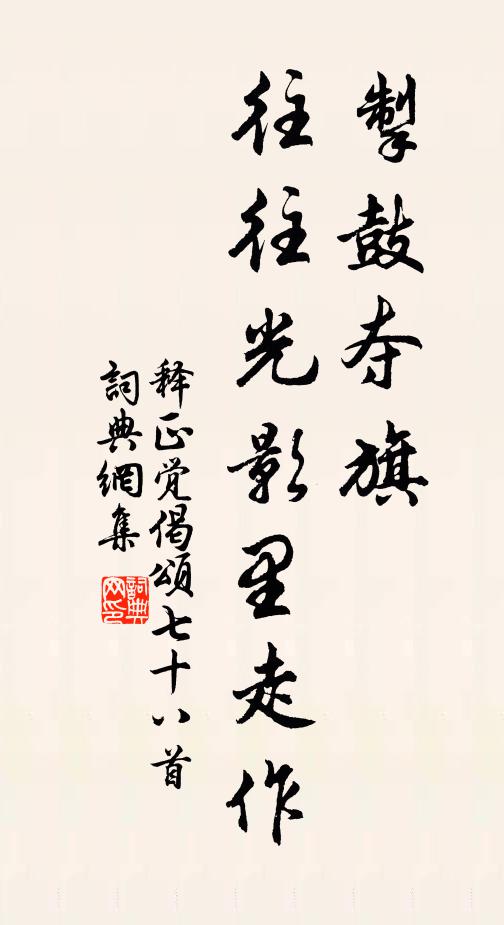 掣鼓夺旗
往往光影里走作
释正觉偈颂七十八首
詞典網集
詞典网印